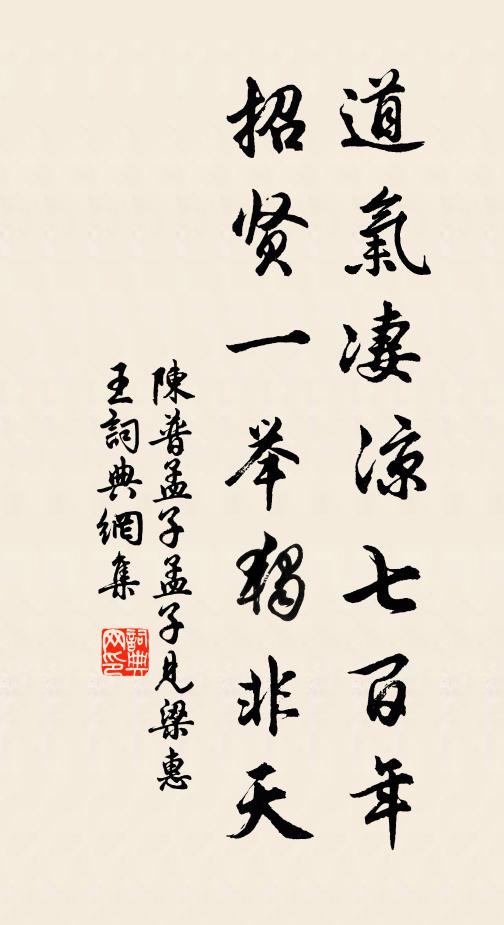 道氣凄涼七百年
招贤一举獨非天
陳普孟子孟子見梁惠
王詞典網集
詞典网印